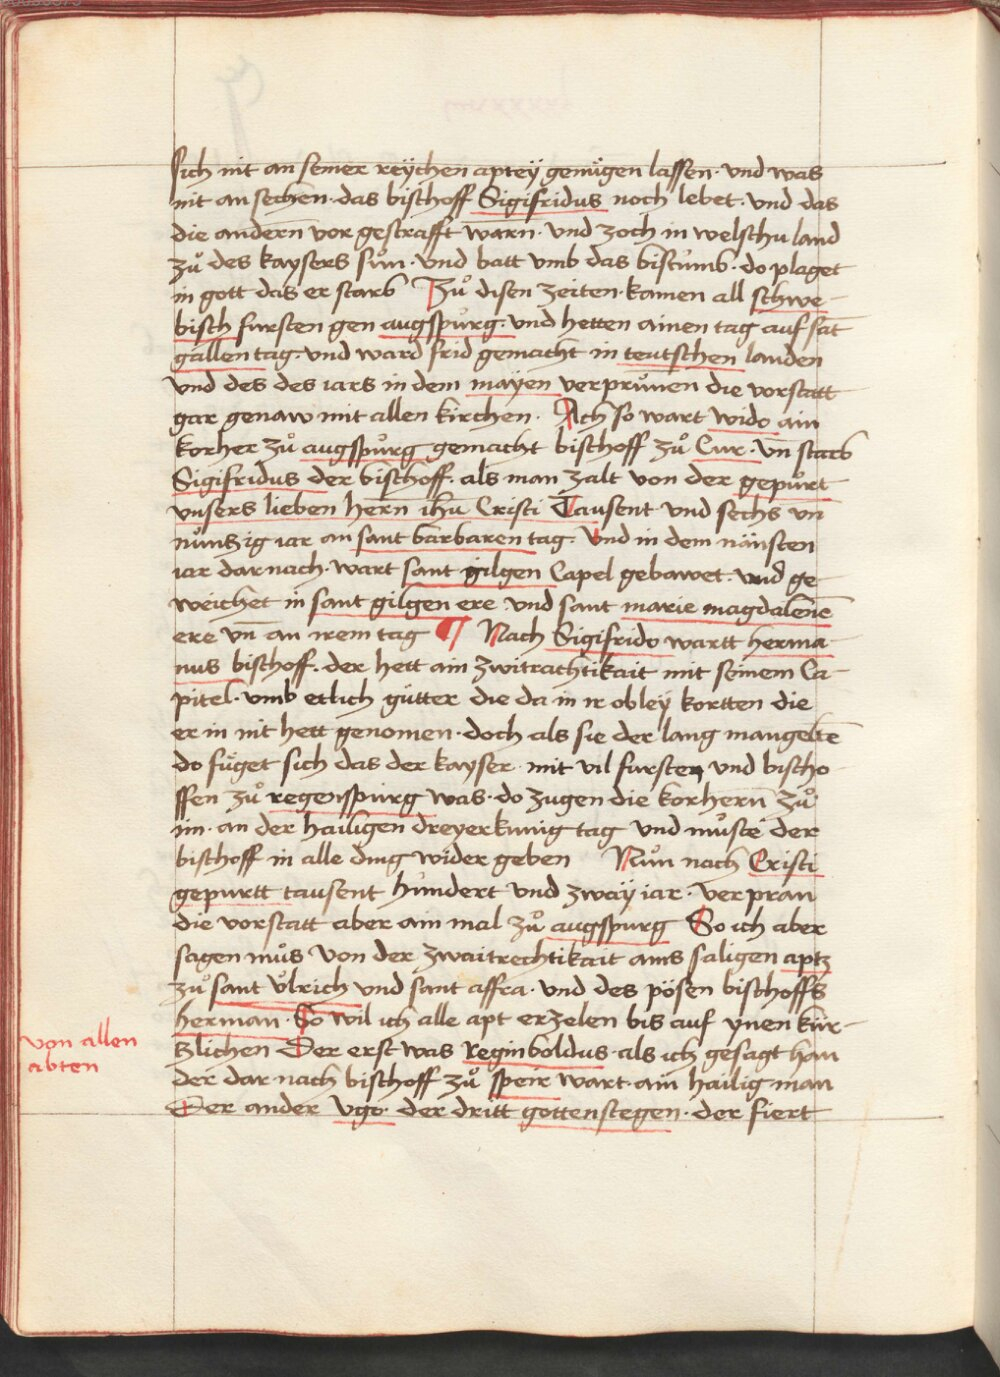 sich nit an seiner reÿchen aptey genuͦgen lassen · und was
nit an sechen · das bischoff Sigifridus noch lebet · und das
die andern vor gestrafft warn · und zoch in welschu land
zuͦ des kaysers suͦn · und batt umb das bistumb · do plaget
in gott das er starb Zuͦ disen zeiten · kamen all schwe-
bisch fursten gen augspurg · und hetten ainen tag auf sāt
gallen tag · und ward frid gemacht in teutschen landen
und des des iars in dem mayen verprunen die vorstatt
gar genaw mit allen kirchen · Ach so wart wido ain
korher zuͦ augspurg gemacht bischoff zuͦ Cur · un̄ starb
Sigifridus der bischoff · als man zalt von der gepurt
unsers lieben hern ihū Cristi Tausent und sechs un̄
nuntzig iar an sant barbaren tag · Und in dem nänsten
iar dar nach · wart sant gilgen Capel gebawet · und ge
weichet in sant gilgen ere und sant marie magdalenē
ere un̄ an irem tag ¶ Nach Sigifrido wartt herma
nus bischoff · der hett ain zwitrachtikait mit seinem Ca-
pitel · umb etlich gütter die da in ir obley kortten die
er in nit hett genomen · doch als sie der lang mangeltē
do fuͦget sich das der kayser · mit vil fursten und bischo
ffen zuͦ regenspurg was · do zugen die korhern zuͦ
im · an der hailigen dreyerkunig tag und muͦste der
bischoff in alle ding wider geben Nuͦn nach Cristi
gepurtt tausent hundert und zwaÿ iar · ver pran
die vorstatt aber ain mal zuͦ augspurg So ich aber
sagen muͦs von der zwaitrechtikait ains saligen aptz
zuͦ sant uͦlrich und sant affra · und des pösen bischoffs
herman · So wil ich alle apt erzelen bis auf ynen kür-
tzlichen Der erst was Reginboldus · als ich gesagt han
der dar nach bischoff zuͦ speir wart · ain hailig man
Der ander Ugo · der dritt gottenstegen · der fiert
von allen
abten